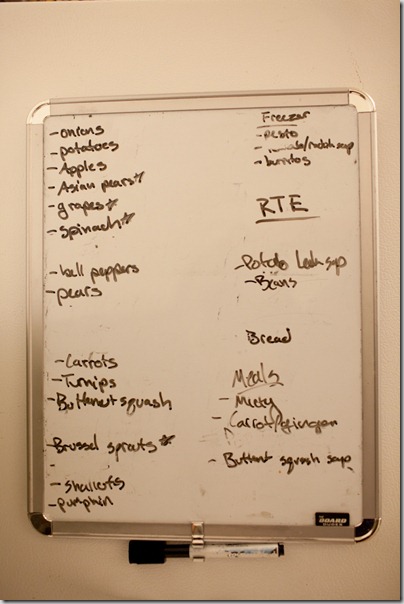 -onions
-potatoes
-Apples
-Asian pears☆
-grapes☆
-spinach☆
-bell peppers
-pears
-Carrots
-Turnips
-Butternut squash
Brussel sprouts☆
-
-shallots
-pumpkin
Freezer
-pesto
-burritos
RTE
-Potato Leek soup
-Beans
Bread
Meals
-
-Carrot/
-Butternut squash soup
THE BOARD DUDES